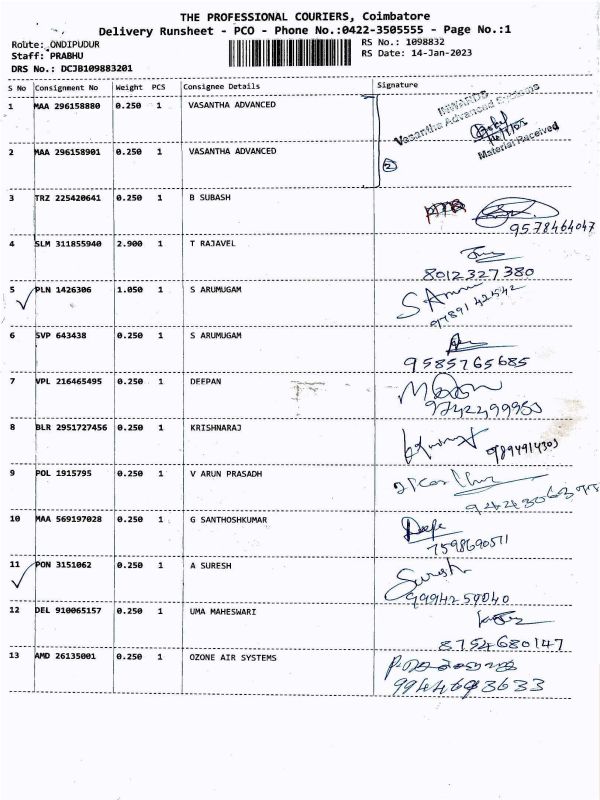 THE PROFESSIONAL COURIERS, Coimbatore
Delivery Runsheet - PCO - Phone No.:0422-3505555 - Page No.:1
Route: ONDIPUDUR RS No.: 1098832
Staff: PRABHU RS Date: 14-Jan-2023
DRS No.: DCJB109883201
S No Consignment No Weight PCS Consignee Details Signature
1 MAA 296158880 0.250 1 VASANTHA ADVANCED
INWARDS
Vasantha Advanced Systems
Material Received
2 MAA 296158901 0.250 1 VASANTHA ADVANCED
2
3 TRZ 225420641 0.250 1 B SUBASH
9578464047
4 SLM 311855940 2.900 1 T RAJAVEL
8012327380
5 PLN 1426306 1.050 1 S ARUMUGAM
9789142542
6 SVP 643438 0.250 1 S ARUMUGAM
9585765685
7 VPL 216465495 0.250 1 DEEPAN
8 BLR 2951727456 0.250 1 KRISHNARAJ
9894914303
9 POL 1915795 0.250 1 V ARUN PRASADH
10 MAA 569197028 0.250 1 G SANTHOSHKUMAR
Deepe
7598690571
11 PON 3151062 0.250 1 A SURESH
Suresh
9994259040
12 DEL 910065157 0.250 1 UMA MAHESWARI
8754680147
13 AMD 26135001 0.250 1 OZONE AIR SYSTEMS